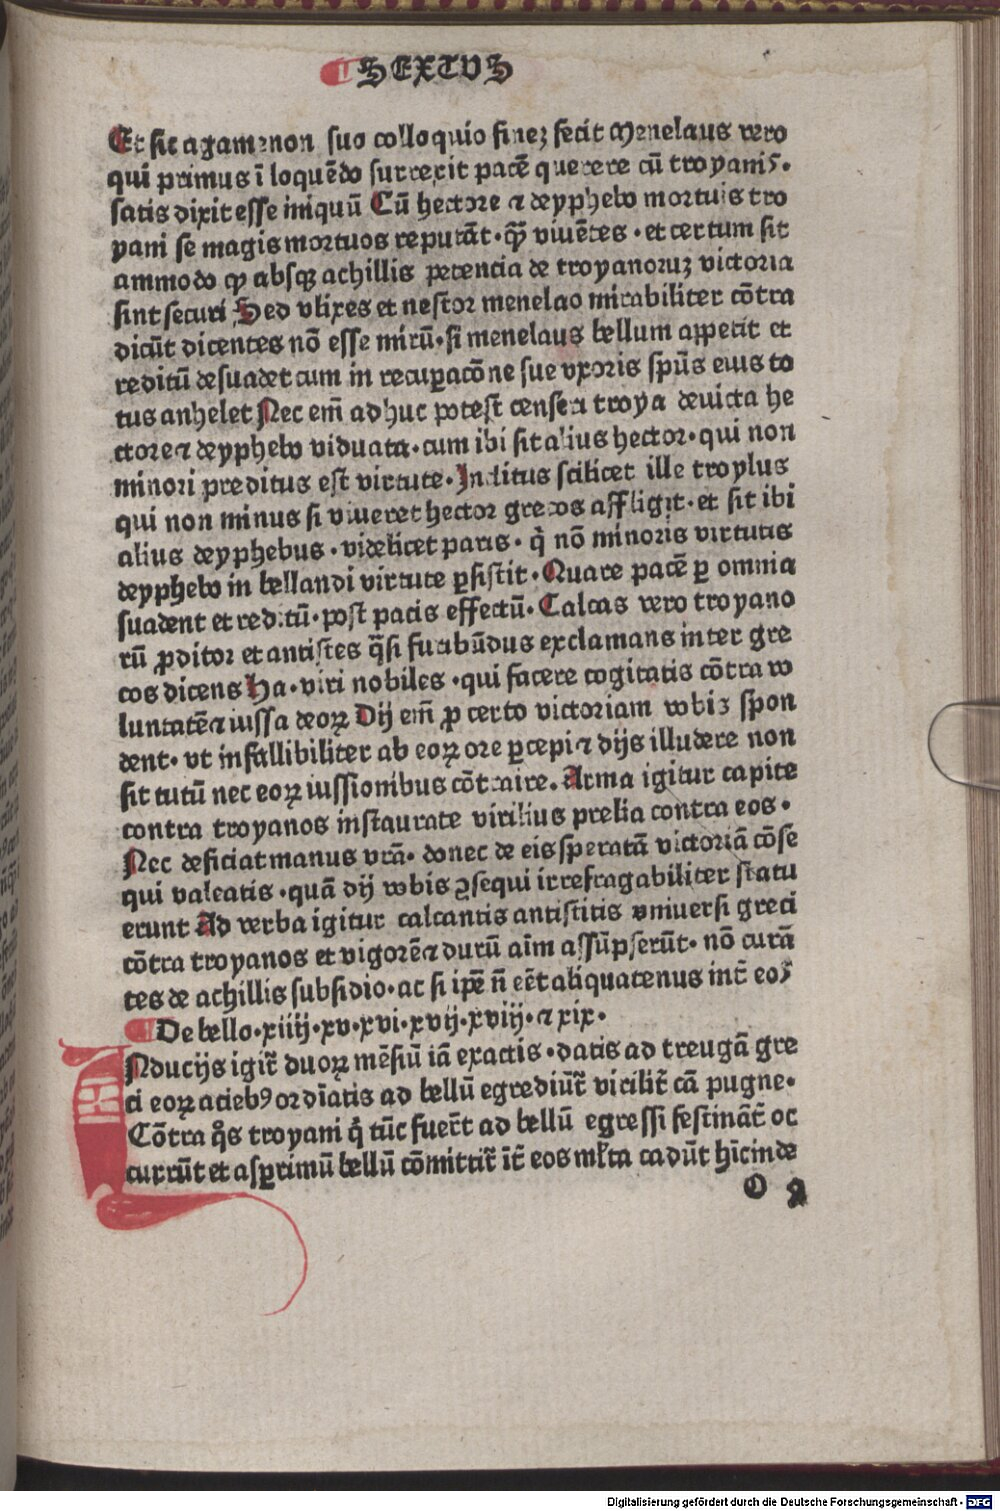 SEXTVS
Et sic agamenon suo colloquio finez fecit Menelaus vero
qui primus ī loquēdo surrexit pacē querere cū troyanis.
satis dixit esse iniquū Cū hectore ⁊ deyphebo mortuis tro
yani se magis mortuos reputāt · qꝫ̄ viuētes · et certum sit
ammodo ꝙ absqꝫ achillis potencia de troyanoruꝫ victoria
sint securi Sed vlixes et nestor menelao mirabiliter cōtra
dicūt dicentes nō esse mirū · si menelaus bellum appetit et
reditū desuadet cum in recuꝑacōne sue vxoris spūs eius to
tus anhelet Nec em̄ adhuc potest censeri troya deuicta he
ctore ⁊ deyphebo viduata · cum ibi sit alius hector · qui non
minori preditus est virtute · Inclitus scilicet ille troylus
qui non minus si viueret hector grecos affligit · et sit ibi
alius deyphebus · videlicet paris · q̇ nō minoris virtutis
deyphebo in bellandi virtute ꝑsistit · Quare pacē ꝑ omnia
suadent et reditū · post pacis effectū · Calcas vero troyano
rū ꝓditor et antistes q̄si furibūdus exclamans inter gre
cos dicens Ha · viri nobiles · qui facere cogitatis cōtra vo
luntatē ⁊ iussa deoꝝ Dij em̄ ꝓ certo victoriam vobis spon
dent · vt infallibiliter ab eoꝝ ore ꝑcepi ⁊ dijs illudere non
sit tutū nec eoꝝ iussionibus cōtraire. Arma igitur capite
contra troyanos instaurate virilius prelia contra eos ·
Nec deficiat manus vrā · donec de eis speratā victoriā cōse
qui valeatis · quā dij vobis ꝯsequi irrefragabiliter statu
erunt Ad verba igitur calcantis antistitis vniuersi greci
cōtra troyanos et vigorē ⁊ durū aīm assūpserūt · nō curā
tes de achillis subsidio · ac si ipē n̄ eēt aliquatenus int̄ eos
De bello · xiiij · xv · xvi · xvij · xviij · ⁊ xix ·
INducijs igit̄ duoꝝ mēsiū iā exactis · datis ad treugā gre
ci eoꝝ aciebꝰ ordīatis ad bellū egrediūt̄ virilit̄ cā pugne ·
Cōtra q̊s troyani q̇ tūc fuer̄t ad bellū egressi festināt̄ oc
currūt et asꝑrimū bellū cōmittit̄ īt̄ eos ml̄ta cadūt hīcinde
O 2
Digitalisierung gefördert durch die Deutsche Forschungsgemeinschaft - DFG